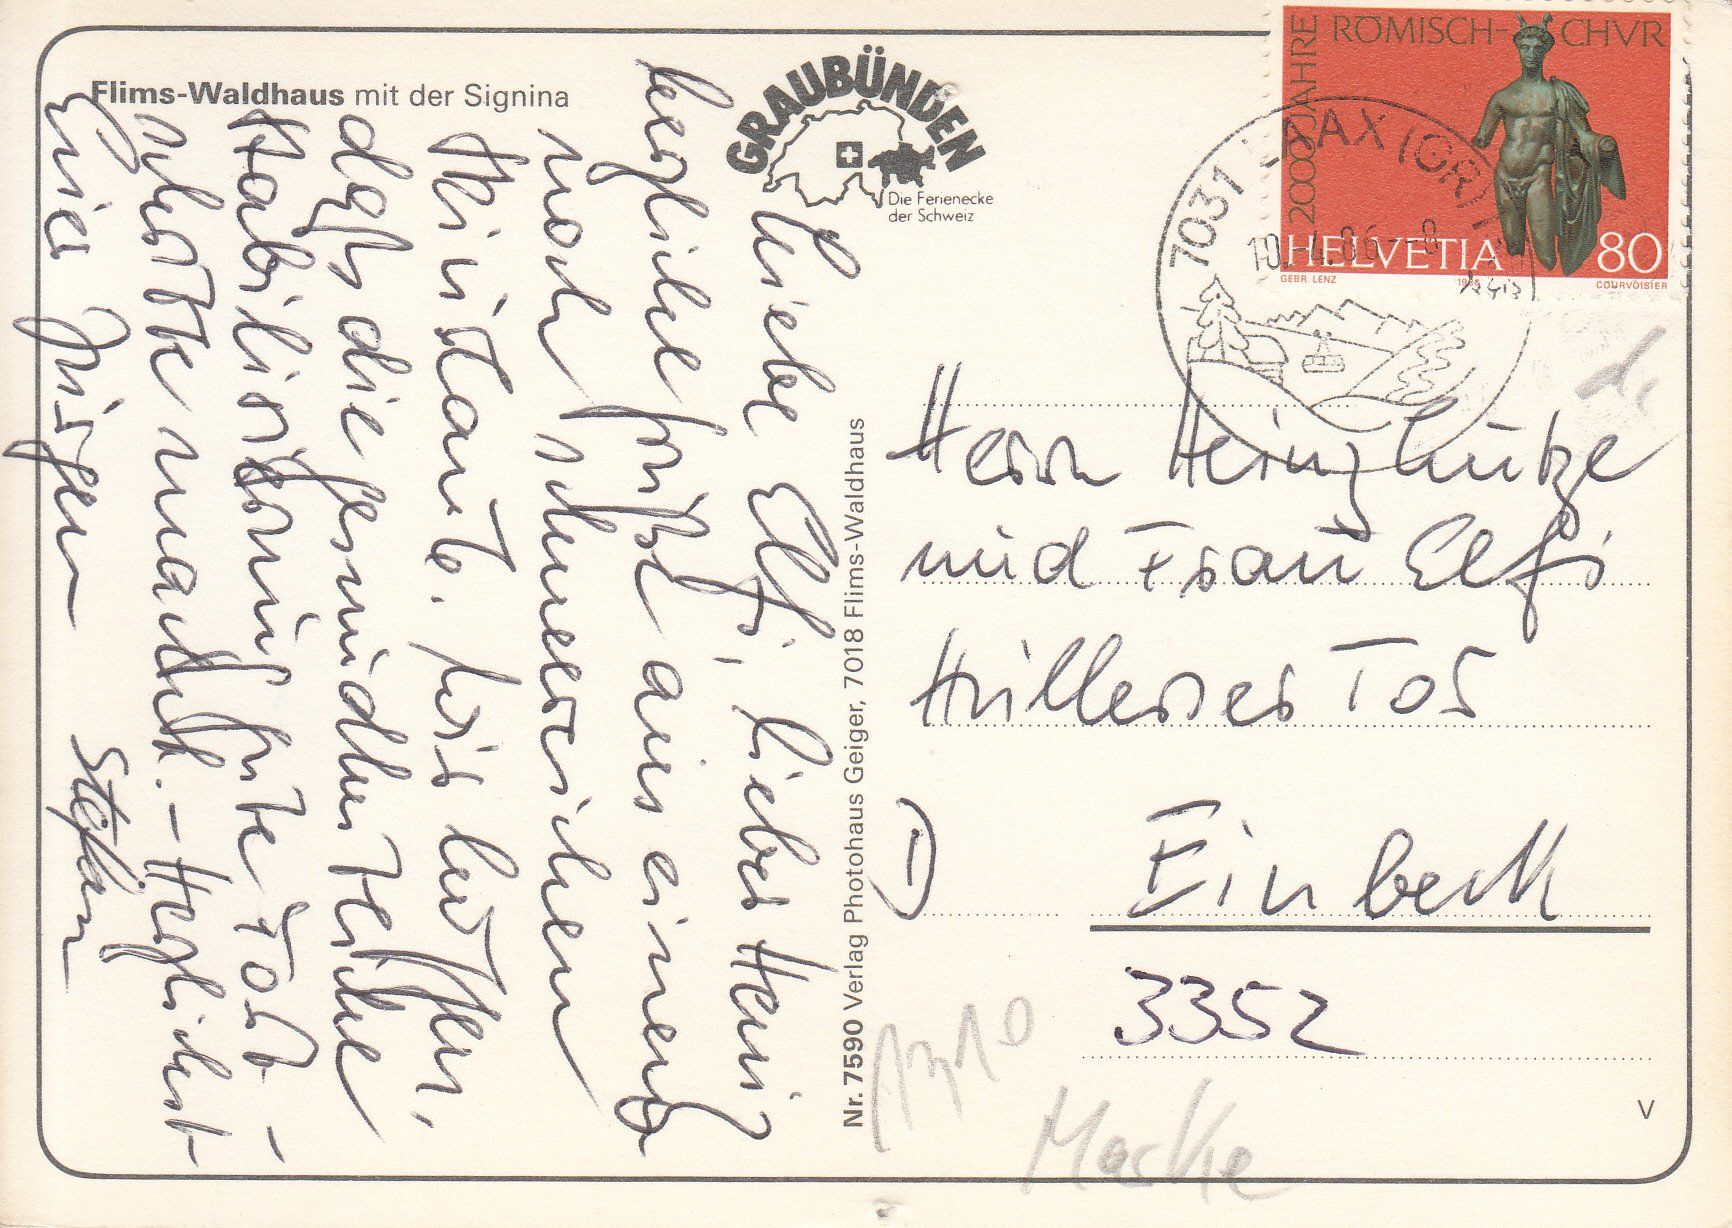 Flims-Waldhaus mit der Signina
GRAUBÜNDEN
Die Ferienecke
der Schweiz
2000 JAHRE
RÖMISCH-CHVR
HELVETIA 80
GEBR. LENZ 1986 COURVOISIER
7031 LAAX (GR)
10.-4.86.-8
Liebe Elfi, lieber Heinz
herzliche Grüße aus einem
noch schneereichen
Skiurlaub. Wir hoffen,
daß die gesundheitliche
Stabilisierung gute Fort-
schritte macht. - Herzlichst
Euer Jürgen Stefan
Nr. 7590 Verlag Photohaus Geiger, 7018 Flims-Waldhaus
Herrn Heinz
und Frau Elfi
Hullerser Tor
D
Einbeck
3352
Marke
V